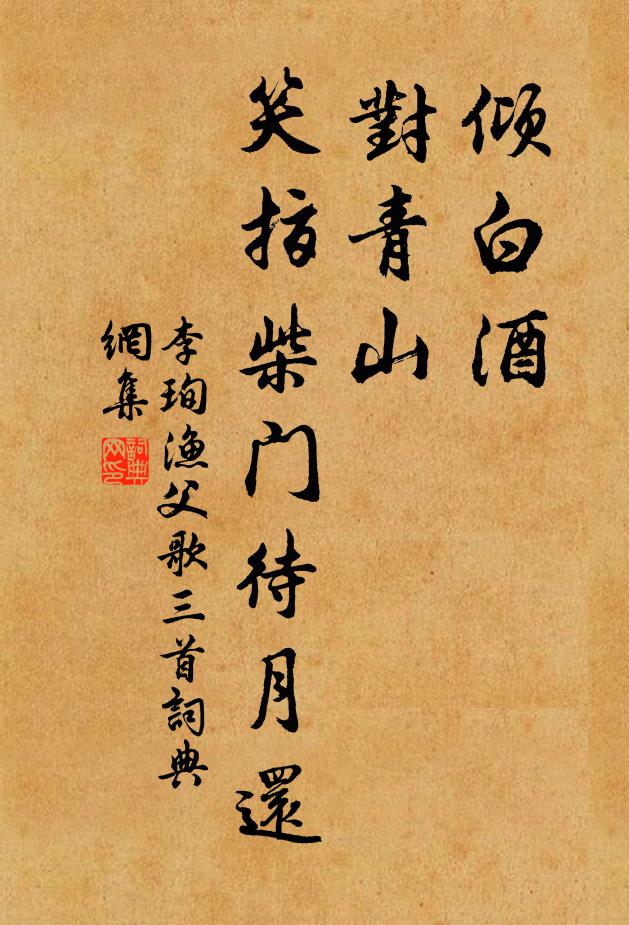 傾白酒
對青山
笑指柴門待月還
李珣漁父歌三首詞典
網集
詞典
网印